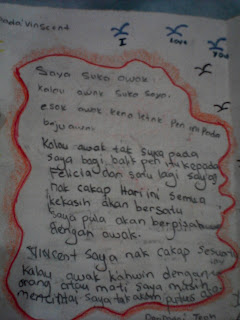 Pada: Vinscend
I Love You
Saya suka awak.
kalau awak suka saya.
esok awak kena letak Pen itu Pada
baju awak.
Kalau awak tak suka pada
saya bagi balik pen itu kepada
Felicia dan satu lagi saya
nak cakap Hari ini semua
kekasih akan bersatu
saya pula akan berpisah
dengan awak.
Vincent saya nak cakap sesuatu
kalau awak kahwin dengan
orang atau mati saya masih
mencintai saya tak akan putus